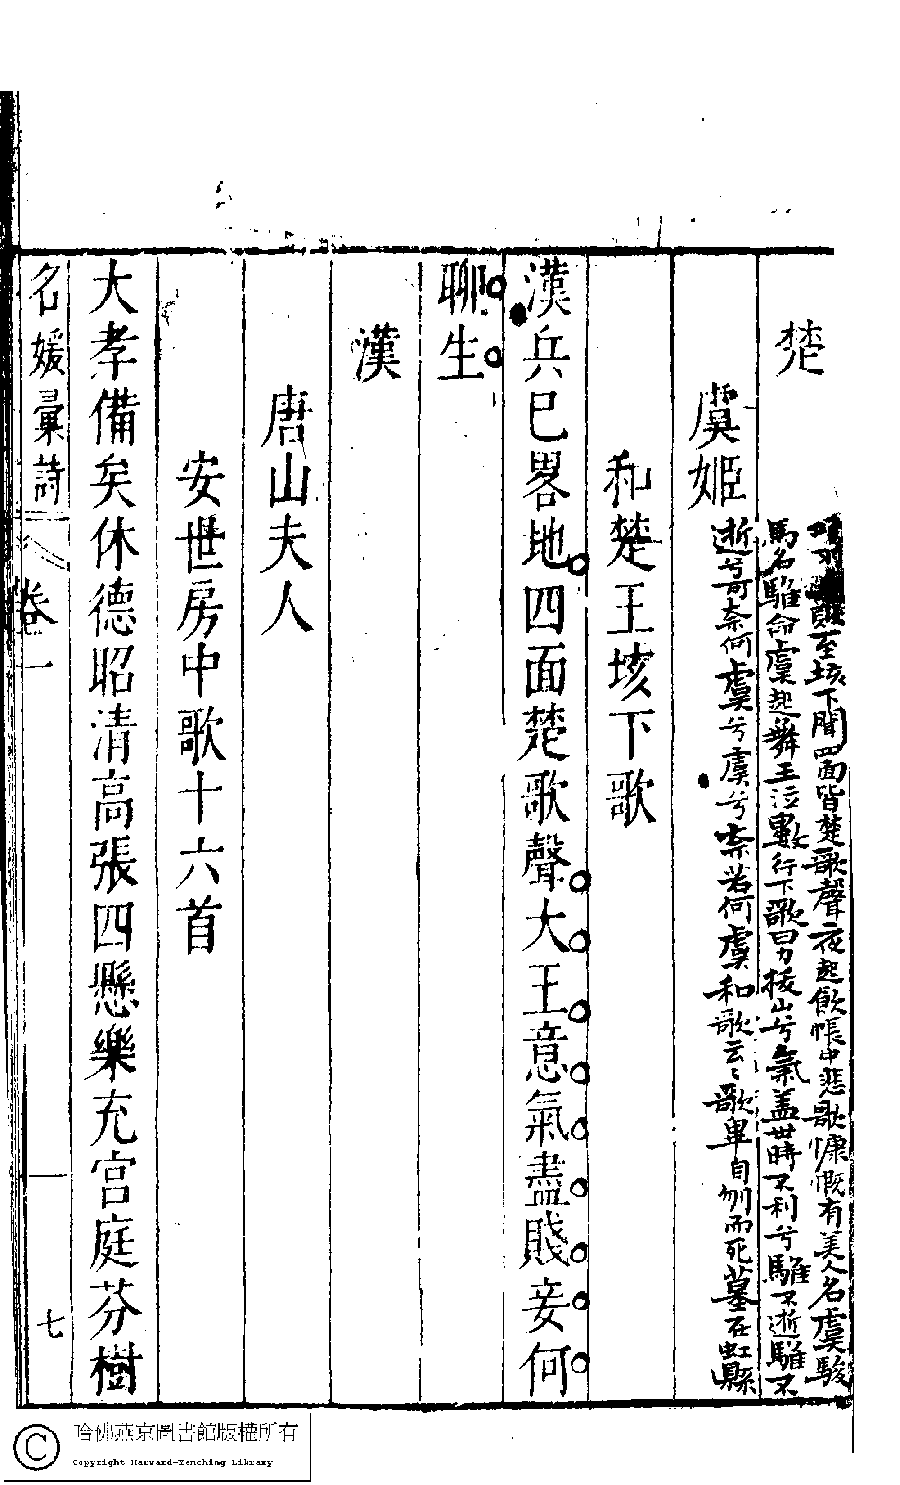 楚
項羽至垓下聞四面皆楚歌聲夜起飲帳中悲歌慷慨有美人名虞駿
馬名騅命虞起舞王泣數行下歌曰力拔山兮氣蓋世時不利兮騅不逝騅不
逝兮可奈何虞兮虞兮奈若何虞和歌云〻歌畢自刎而死墓在虹縣
虞姬
和楚王垓下歌
漢兵已畧地四面楚歌聲大王意氣盡賤妾何
聊生
漢
唐山夫人
安世房中歌十六首
大孝備矣休德昭清高張四懸樂充宮庭芬樹
名媛彙詩 卷一 七
哈佛燕京圖書館版權所有
Copyright Harvard-Yenching Library